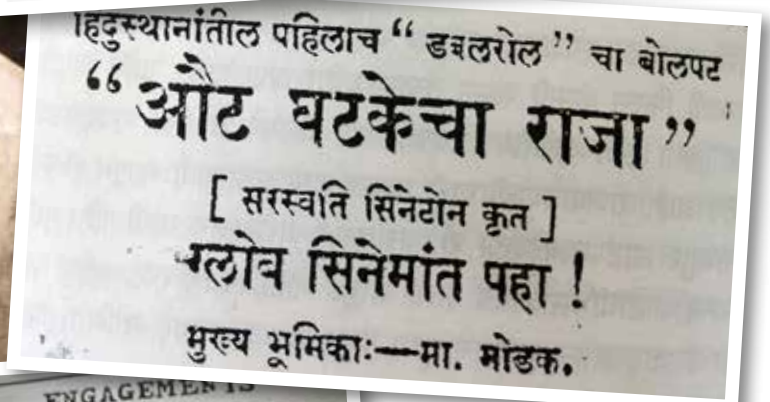 हिंदुस्थानांतील पहिलाच “ डबलरोल ” चा बोलपट
“ औट घटकेचा राजा ”
[ सरस्वति सिनेटोन कृत ]
ग्लोब सिनेमांत पहा !
मुख्य भूमिकाः—मा. मोडक.
ENGAGEMENTS